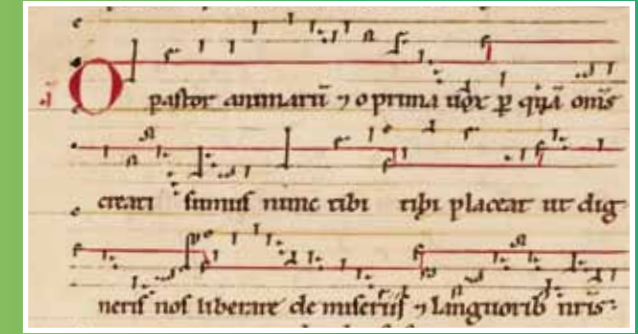 O pastor animarū ⁊ o prima uox p̱ quā om̄s
creati sumus nunc tibi tibi placeat ut dig
neris nos liberare de miseriis ⁊ languorib nr̄is.